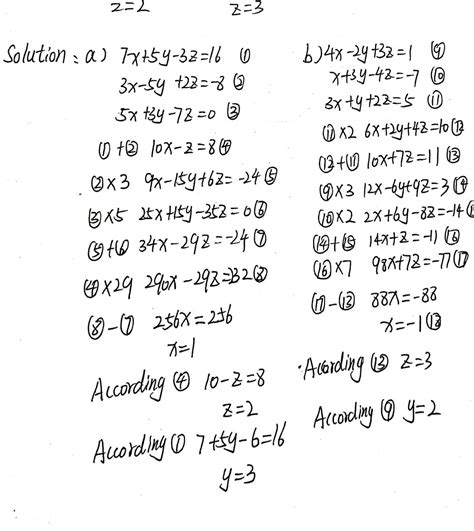 z=2
z=3
Solution: a) 7x+5y-3z=16 ①
3x-5y+2z=-8 ②
5x+3y-7z=0 ③
①+② 10x-z=8 ④
②×3 9x-15y+6z=-24 ⑤
③×5 25x+15y-35z=0 ⑥
⑤+⑥ 34x-29z=-24 ⑦
④×29 290x-29z=232 ⑧
⑧-⑦ 256x=256
x=1
According ④ 10-z=8
z=2
According ① 7+5y-6=16
y=3
b) 4x-2y+3z=1 ⑨
x+3y-4z=-7 ⑩
3x+y+2z=5 ⑪
⑪×2 6x+2y+4z=10 ⑫
⑫+⑪ 10x+7z=11 ⑬
⑨×3 12x-6y+9z=3 ⑭
⑩×2 2x+6y-8z=-14
⑭+⑮ 14x+z=-11 ⑯
⑯×7 98x+7z=-77 ⑰
⑰-⑬ 88x=-88
x=-1
According ⑬ z=3
According ⑨ y=2